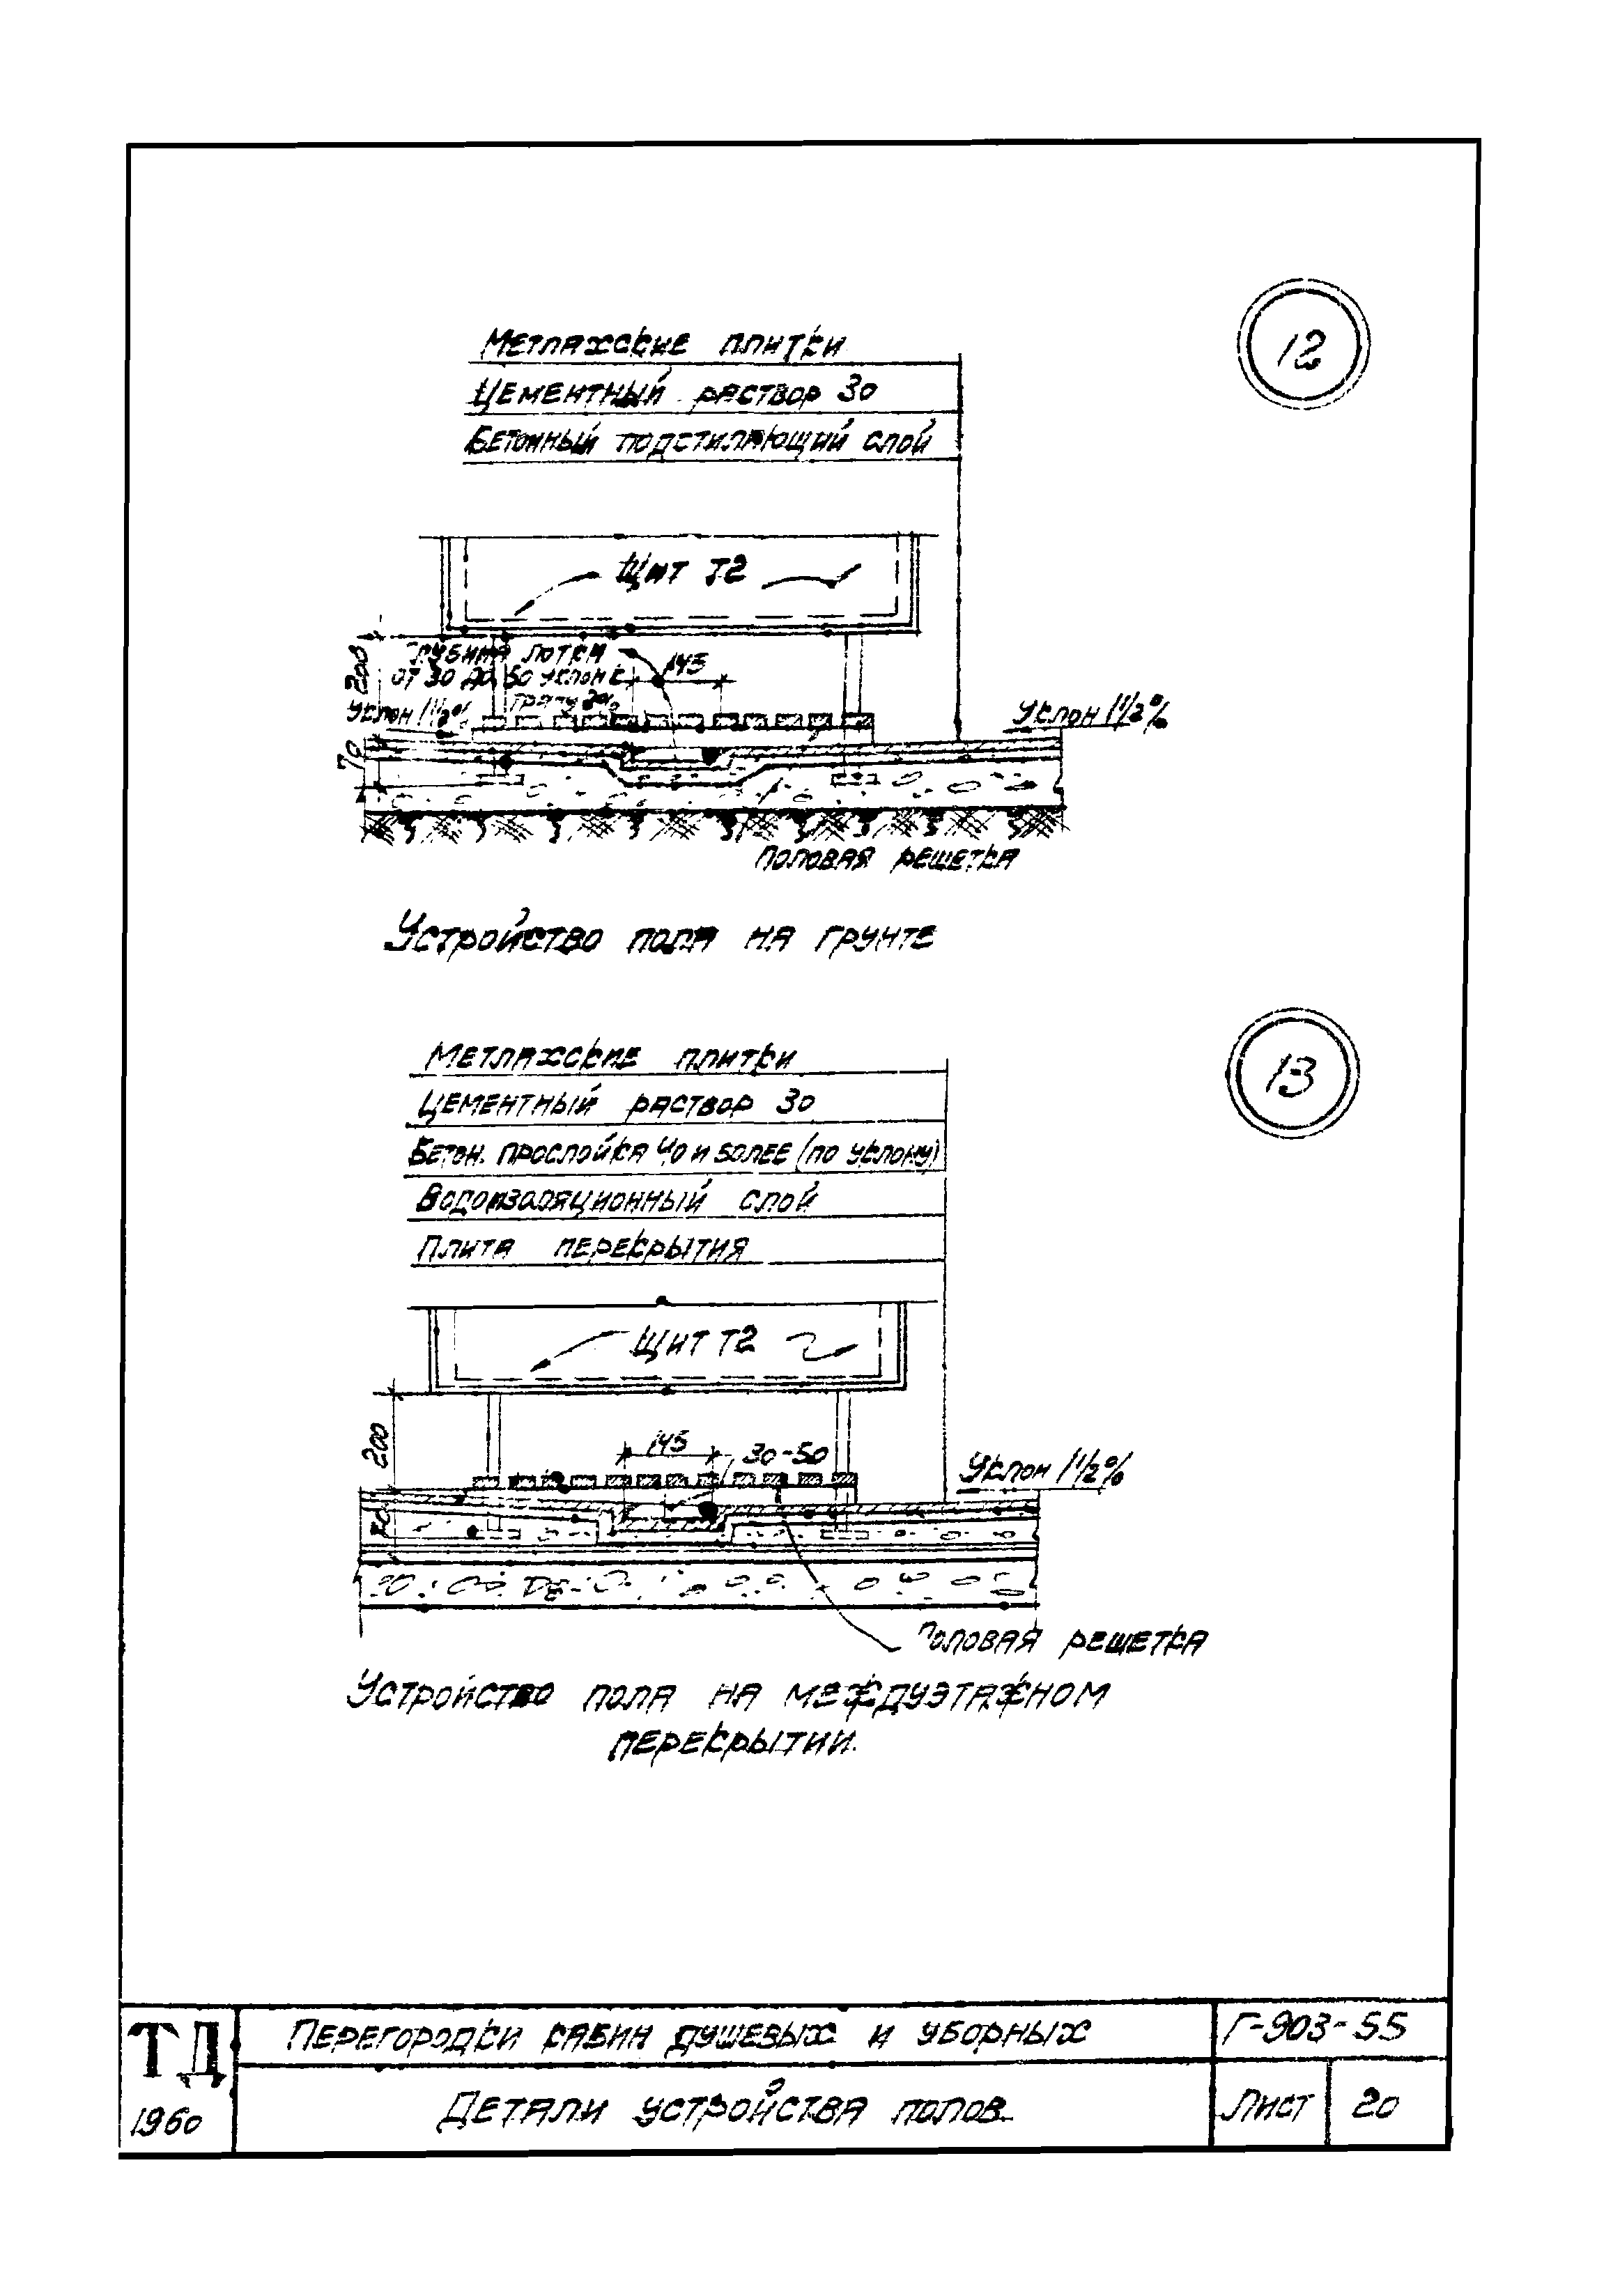 12
Метлахские плитки
Цементный раствор 30
Бетонный подстилающий слой
Щит Т2
Глубина лотка
от 30 до 50 уклон к
трапу 2%
145
200
Уклон 1 1/2%
Уклон 1 1/2%
70
Половая решетка
Устройство пола на грунте
13
Метлахские плитки
Цементный раствор 30
Бетон. прослойка 40 и более (по уклону)
Водоизоляционный слой
Плита перекрытия
Щит Т2
200
145
30-50
Уклон 1 1/2%
Половая решетка
Устройство пола на междуэтажном
перекрытии.
ТД
1960
Перегородки кабин душевых и уборных
Г-903-55
Детали устройства полов.
Лист 20